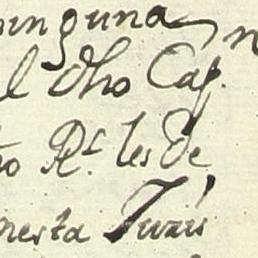 ninguna n
l dho Cap.
to Rl. les de
nesta Juris